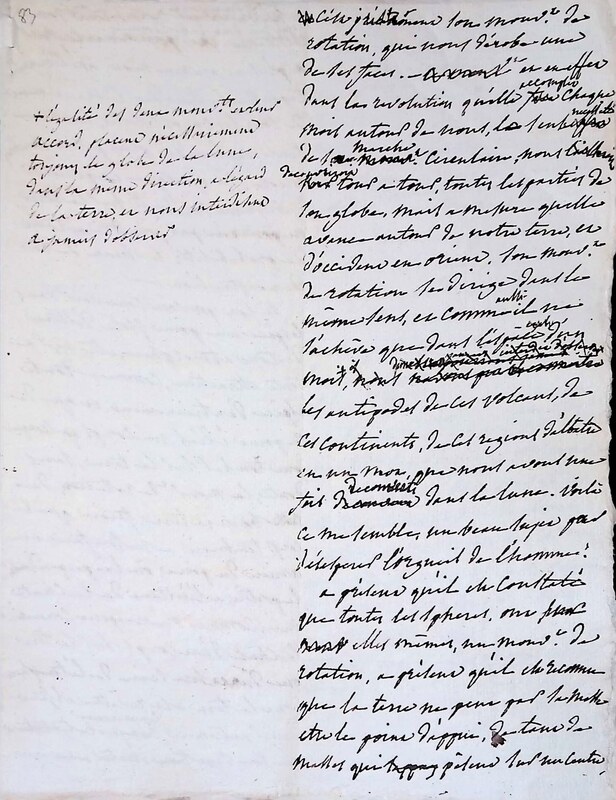 83
+ légalité des deux mouv.ts et leur
accord, placent nécessairement
toujours le globe de la lune,
dans la même direction, a légard
de la terre, et nous interdisent
a jamais d'observer
C'est précisément son mouv.t de
rotation, qui nous dérobe une
de ses faces. en effet
dans la revolution qu'elle accomplit chaque
mois autour de nous, la seule
de sa marche circulaire, nous
decouvriroit tour a tour, toutes les parties de
son globe, mais a mesure quelle
avance autour de notre terre, et
d'occident en orient, son mouv.t
de rotation se dirige dans le
même sens, et comme aussi il ne
s'achève que dans l'espace d'un
mois,
les antipodes de ces volcans, de
ces continents, de ces regions d'albatre
en un mot, que nous avons une
fois decouverts dans la lune. Voilà
ce me semble, un beau sujet pour
désesperer l'orgueil de l'homme!
a présent qu'il est constaté
que toutes les spheres, ont
elles mêmes, un mouv.t de
rotation, a présent qu'il est reconnu
que la terre ne peut par sa masse
etre le point d'appui, de tant de
masses qui pèsent sur un centre,